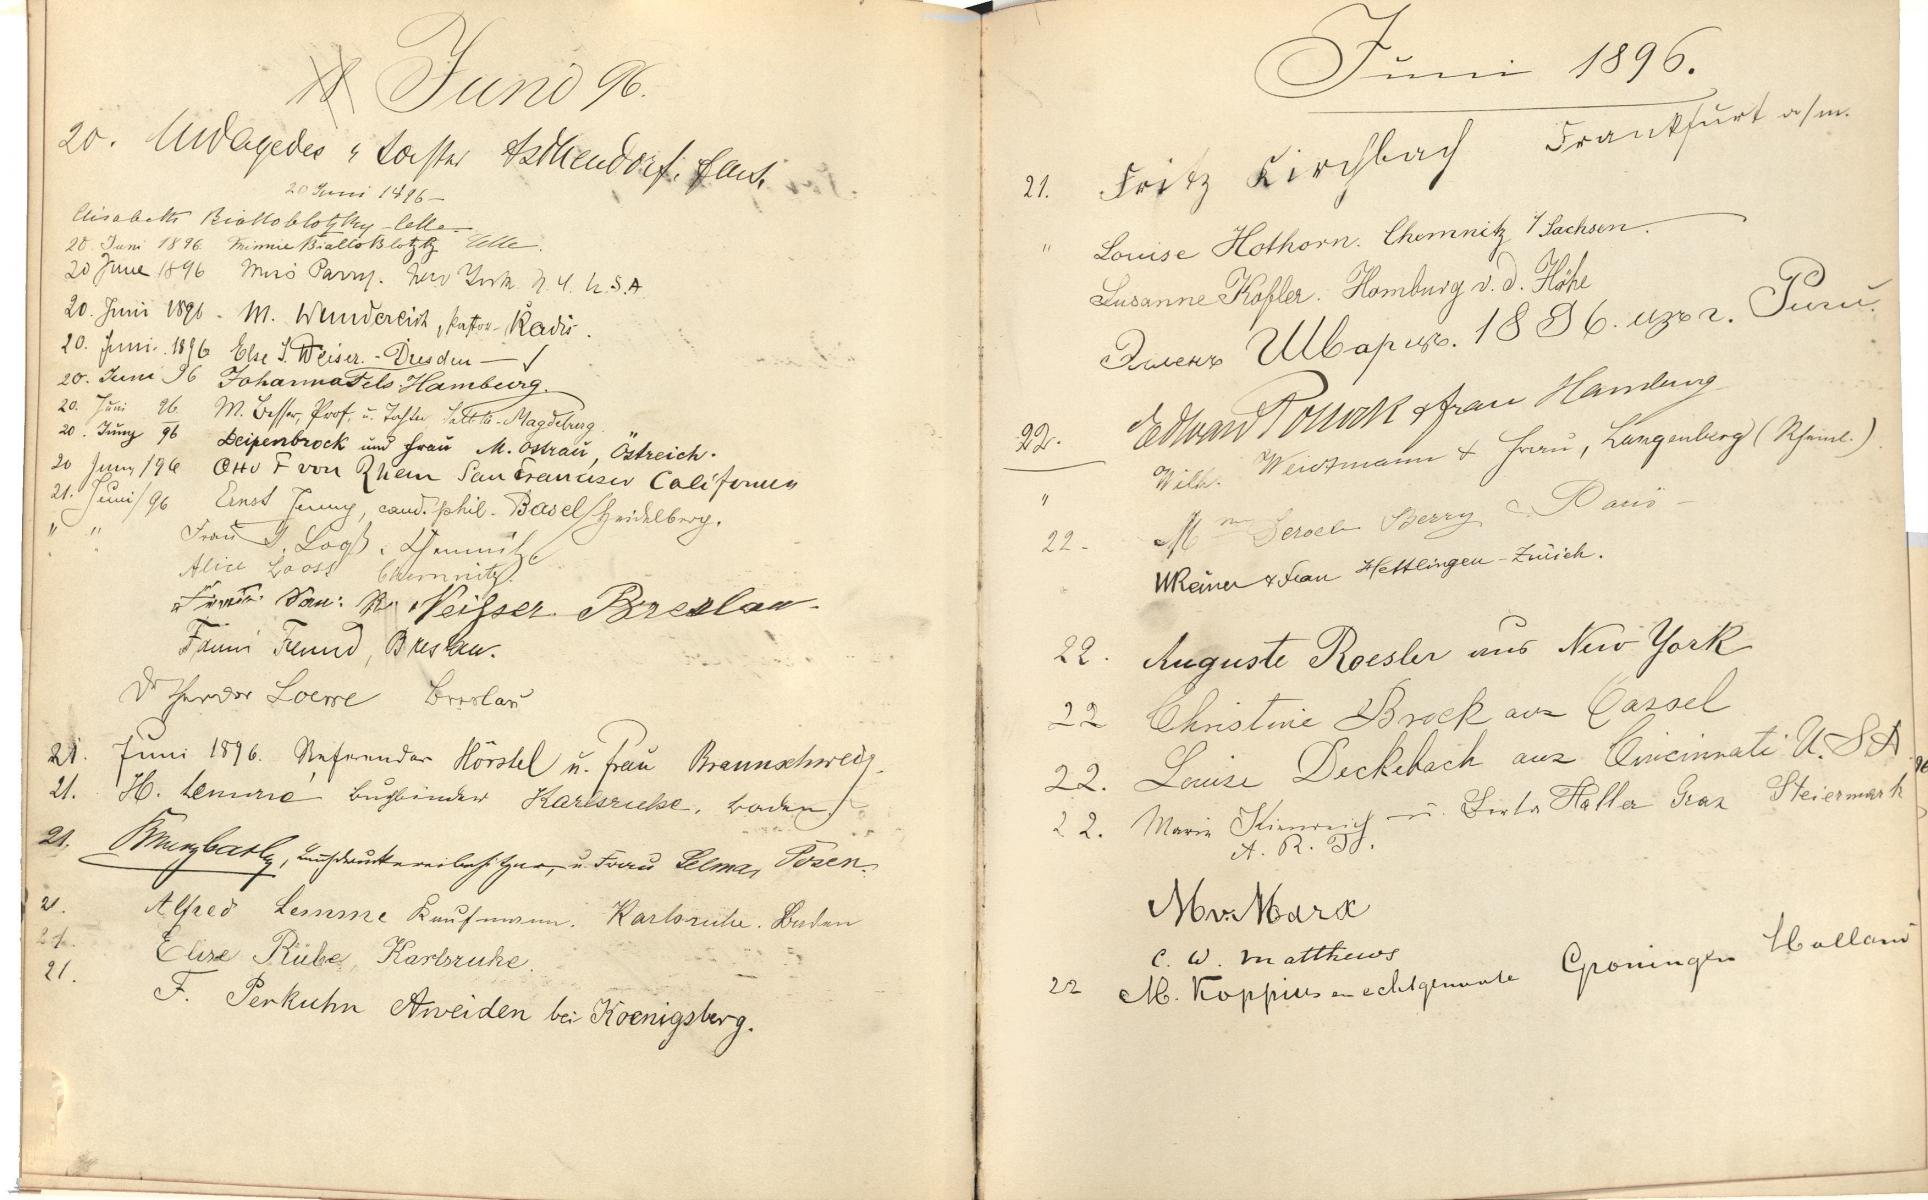 Juni 96.
20.
20 Juni 1896
Elisabeth Bialloblotzky Celle.
20. Juni 1896 Minnie Bialloblotzky Celle.
20 June 1896 Miss Parry. New York N.Y. U.S.A
20. Juni 1896. M. Wunderlich, Pastor Radis.
20. Juni. 1896 Else S. Weiser. - Dresden
20. Juni 96 Johanna Fels Hamburg.
20. Juni 96 M. Prof. u. Tochter Magdeburg.
20. Juny 96 Deipenbrock und Frau M. Ostrau, Östreich.
20 Juny/96 Otto F von Rhein San Francisco California
21. Juni/96 Ernst Jenny, cand. phil. Basel/Heidelberg.
" " Frau Chemnitz
Alice Looss Chemnitz.
San: R. Neisser Breslau.
Freund, Breslau.
Dr Theodor Loewe Breslau
21. Juni 1896. Referendar Hörstel u. Frau Braunschweig.
21. H. Karlsruhe. Baden
21. Buchdruckereibesitzer, u. Frau Selma, Posen.
21. Alfred Lemme Kaufmann. Karlsruhe. Baden
21. Elise Rübe, Karlsruhe.
21. F. Perkuhn Aweiden bei Koenigsberg.
Juni 1896.
21. Fritz Kirchbach Frankfurt a/m.
" Louise Hothorn. Chemnitz i/Sachsen.
Susanne Kofler. Homburg v. d. Höhe
Шварцъ. 1896. изъ г. Риги.
22. Edward & Frau Hamburg
" Wilh. Weidtmann & Frau, Langenberg (Rheinl.)
22. Mme Berry Paris
& Frau Hettlingen - Zürich.
22. Auguste Roesler aus New York
22 Christine Brock aus Cassel
22. Louise Deckebach aus Cincinnati U.S.A
22. Marie Kienreich u. Haller Graz Steiermark
M. v. Marx
C. W. Matthews
22 M. Koppius en echtgenoote Groningen Holland